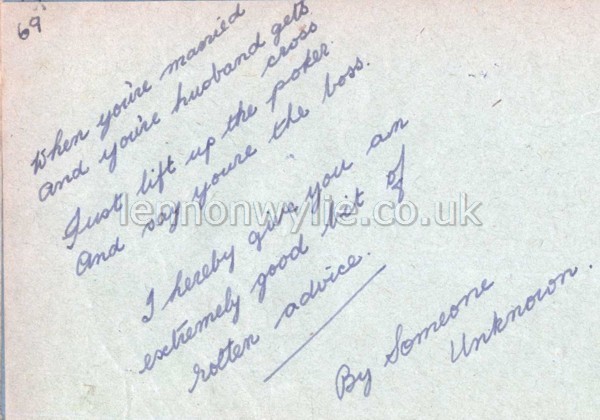 69
When you're married
and you're husband gets
cross
Just lift up the poker.
And say youre the boss.
lennonwylie.co.uk
I hereby give you an
extremely good bit of
rotten advice.
By Someone
Unknown.